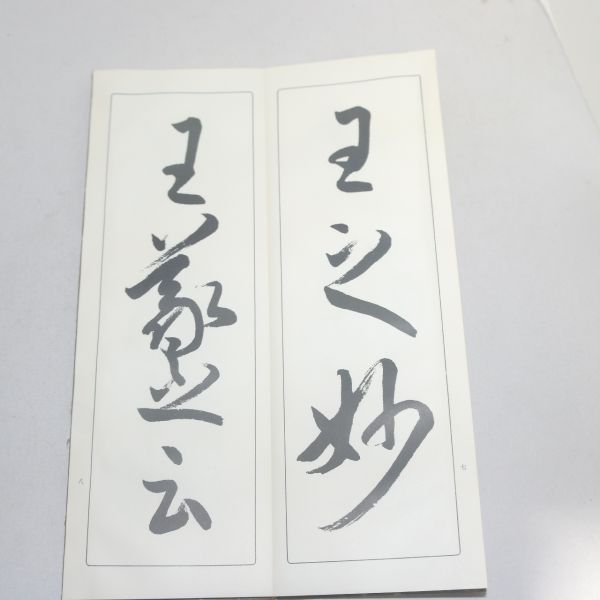 王之妙
王羲之云
七
八